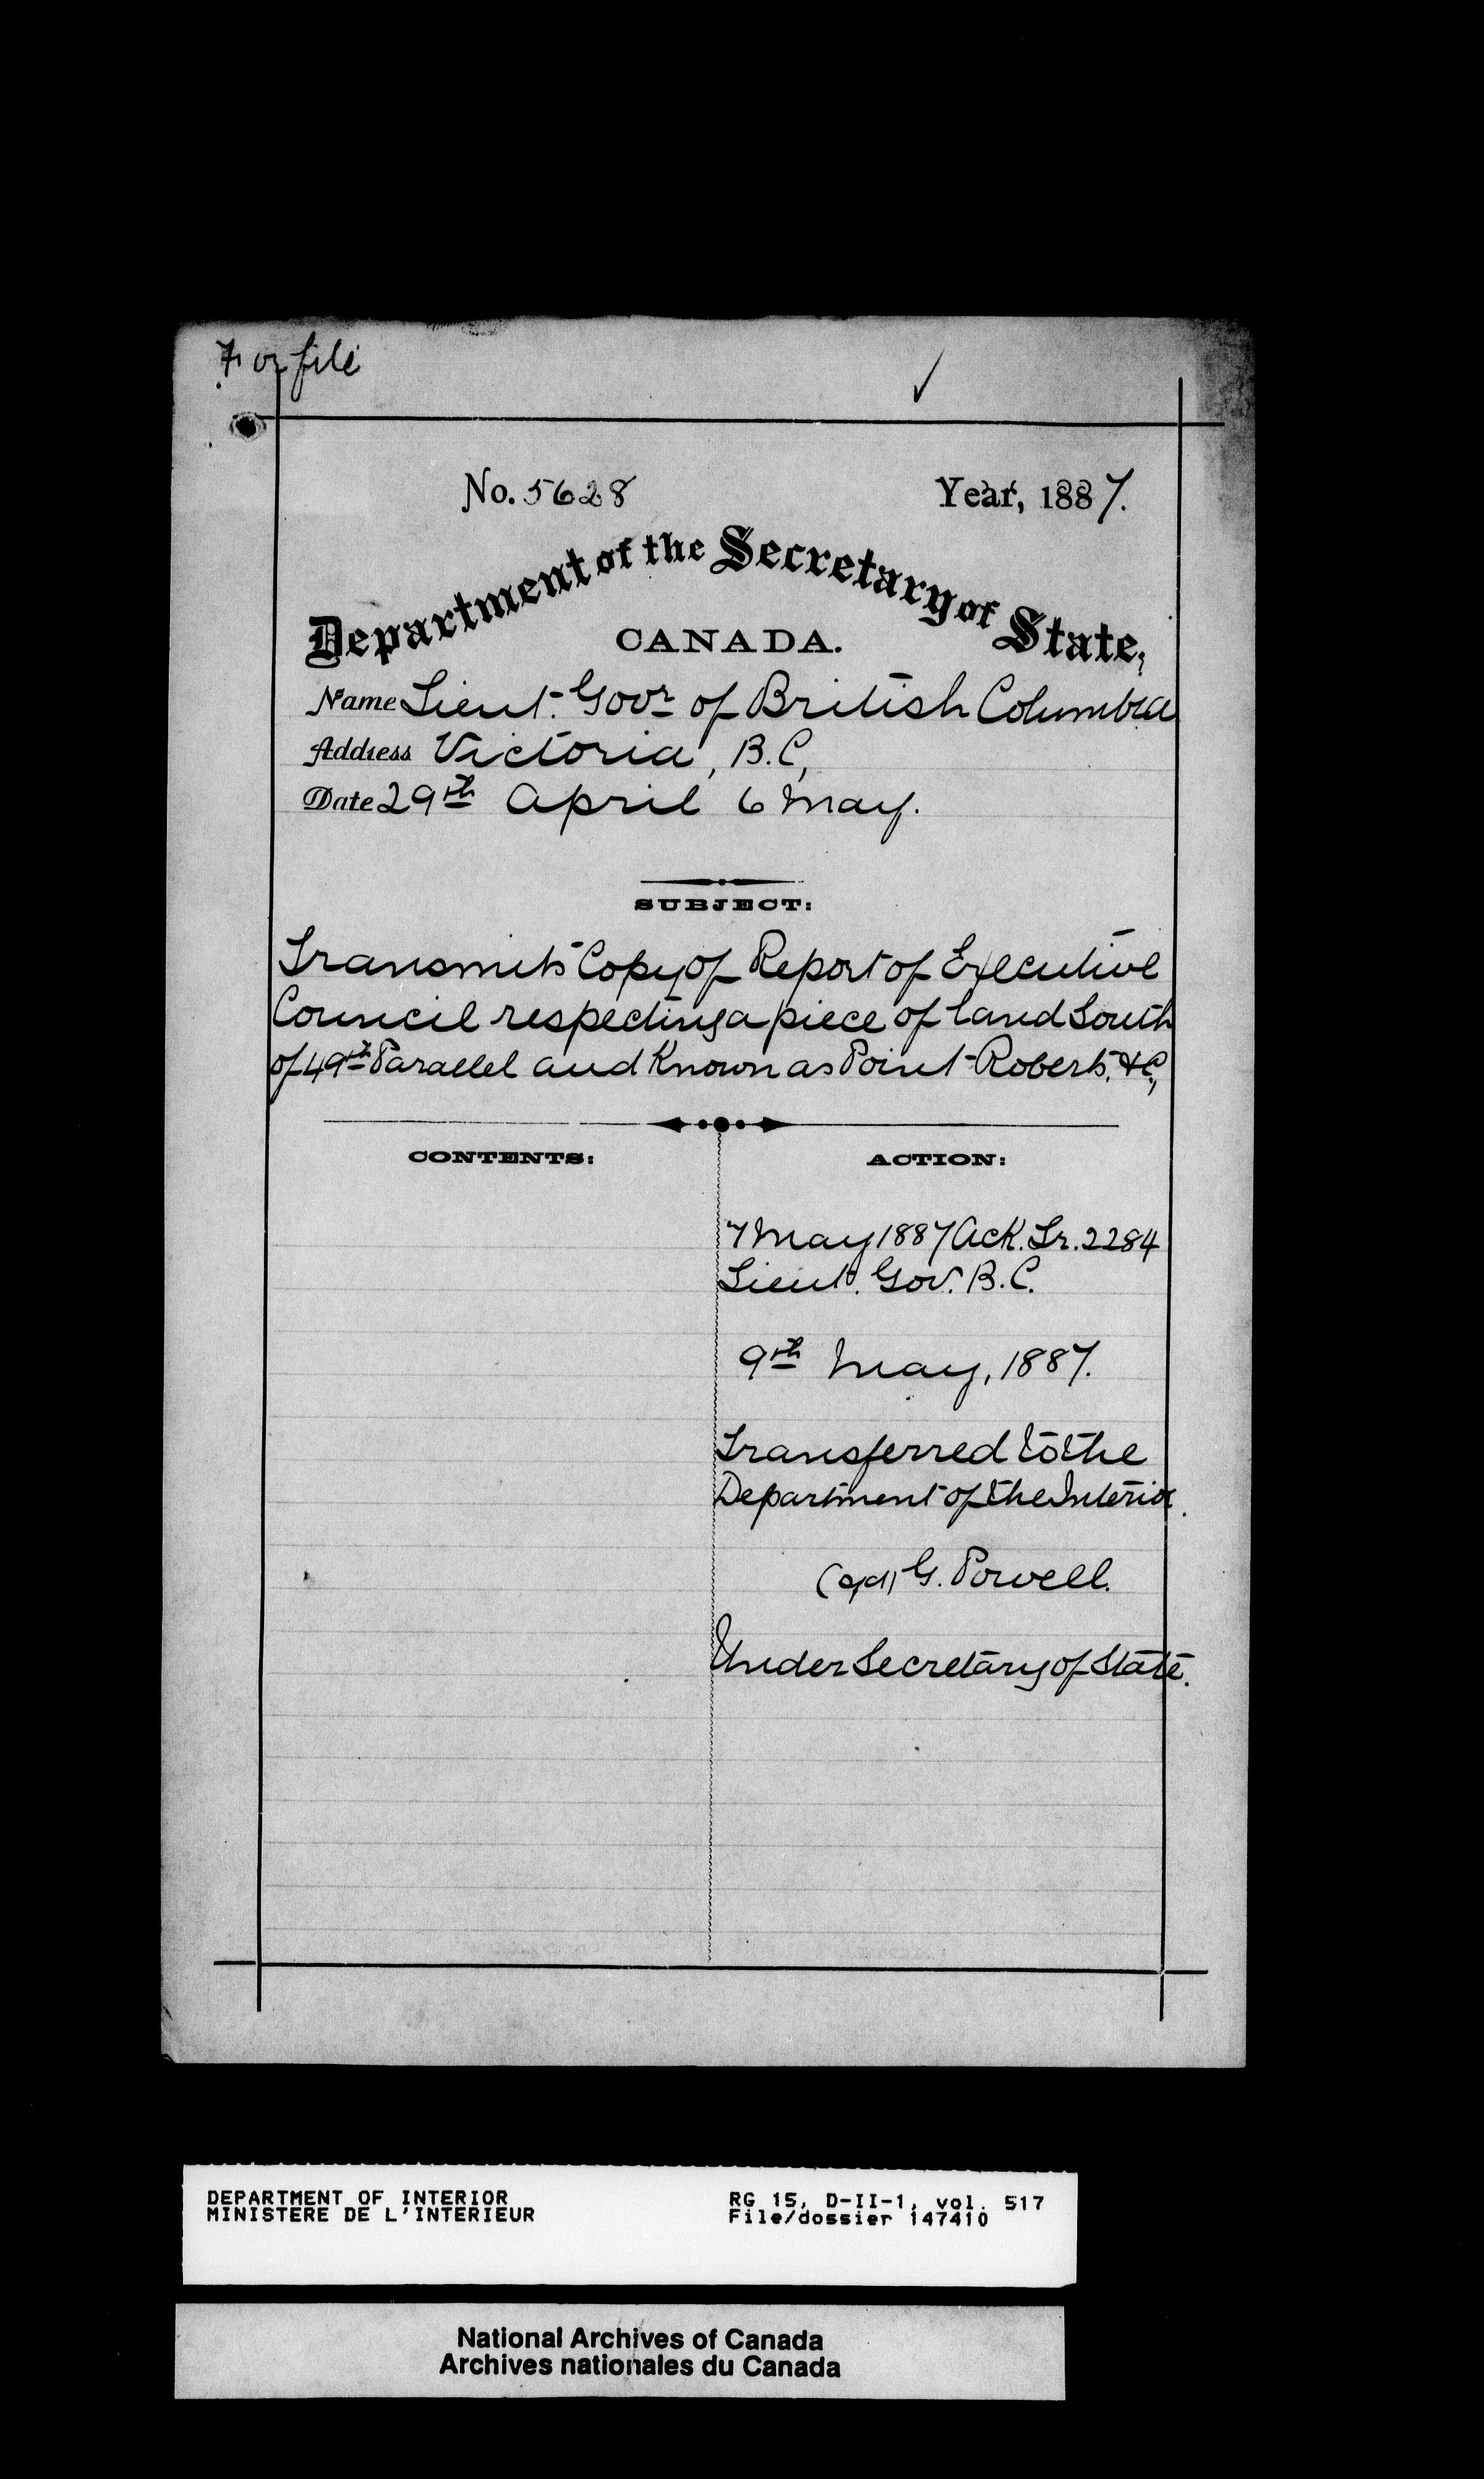 For file
No. 5628 Year, 1887.
Department of the Secretary of State,
CANADA.
Name Lieut. Govr of British Columbia
Address Victoria, B.C,
Date 29th April 6 May.
SUBJECT:
Transmits Copy of Report of Executive
Council respecting a piece of land South
of 49th Parallel and Known as Point Roberts, &c,
CONTENTS:
ACTION:
7 May 1887 Ack. Lr. 2284
Lieut. Gov. B.C.
9th May, 1887.
Transferred to the
Department of the Interior.
(sgd) G. Powell.
Under Secretary of State.
DEPARTMENT OF INTERIOR
MINISTERE DE L'INTERIEUR
RG 15, D-II-1, vol. 517
File/dossier 147410
National Archives of Canada
Archives nationales du Canada